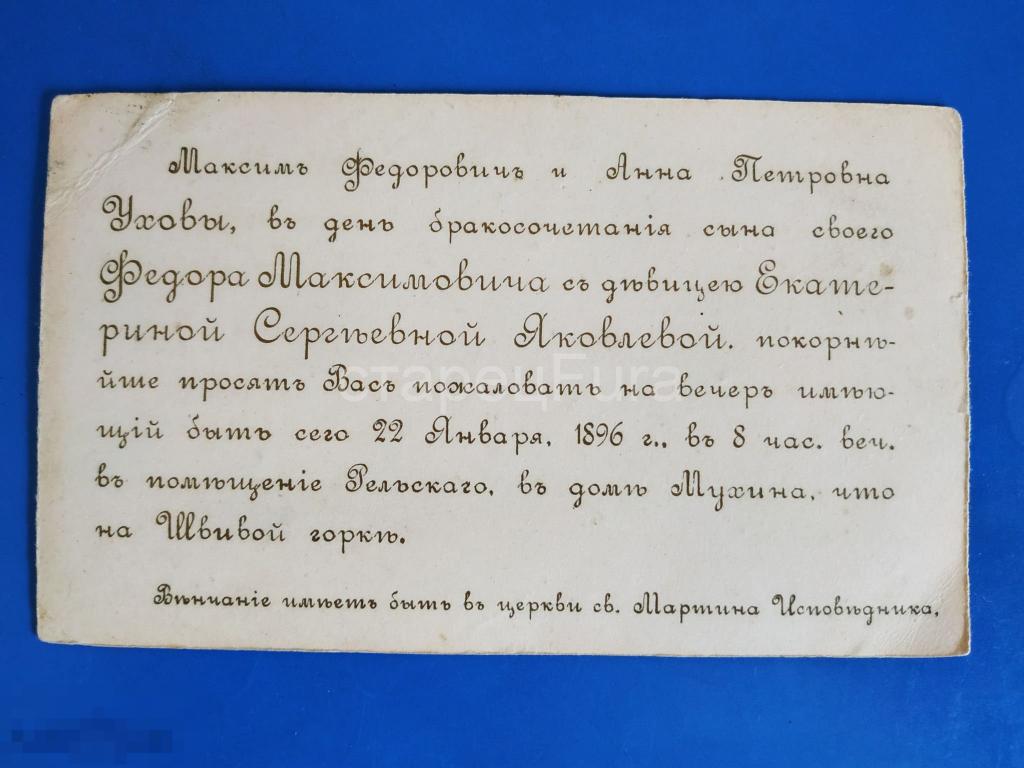 Максимъ Федоровичъ и Анна Петровна
Уховы, въ день бракосочетанія сына своего
Федора Максимовича съ дѣвицею Екате-
риной Сергѣевной Яковлевой, покорнѣ-
йше просятъ Васъ пожаловать на вечеръ имѣю-
щій быть сего 22 Января, 1896 г., въ 8 час. веч.
въ помѣщеніе Рельскаго, въ домѣ Мухина, что
на Швивой горкѣ.
Вѣнчаніе имѣетъ быть въ церкви св. Мартина Исповѣдника.
старецFura